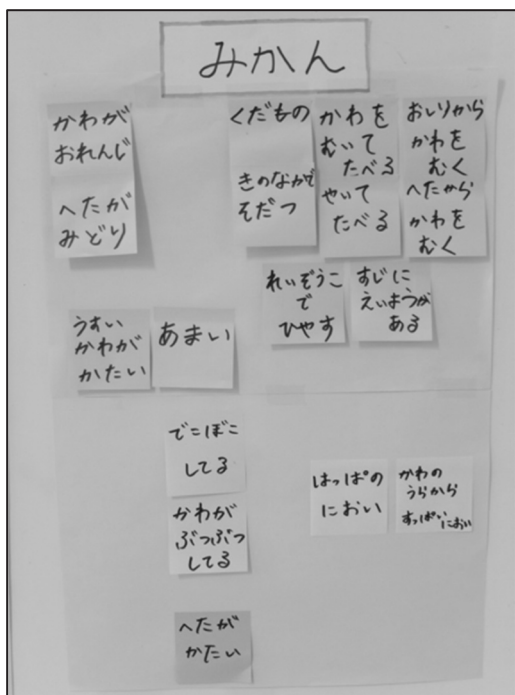 みかん
かわが
おれんじ
へたが
みどり
くだもの
きのなかで
そだつ
かわを
むいて
たべる
やいて
たべる
おしりから
かわを
むく
へたから
かわを
むく
れいぞうこ
で
ひやす
すじに
えいようが
ある
うすい
かわが
かたい
あまい
でこぼこ
してる
かわが
ぶつぶつ
してる
へたが
かたい
はっぱの
におい
かわの
うらから
すっぱいにおい